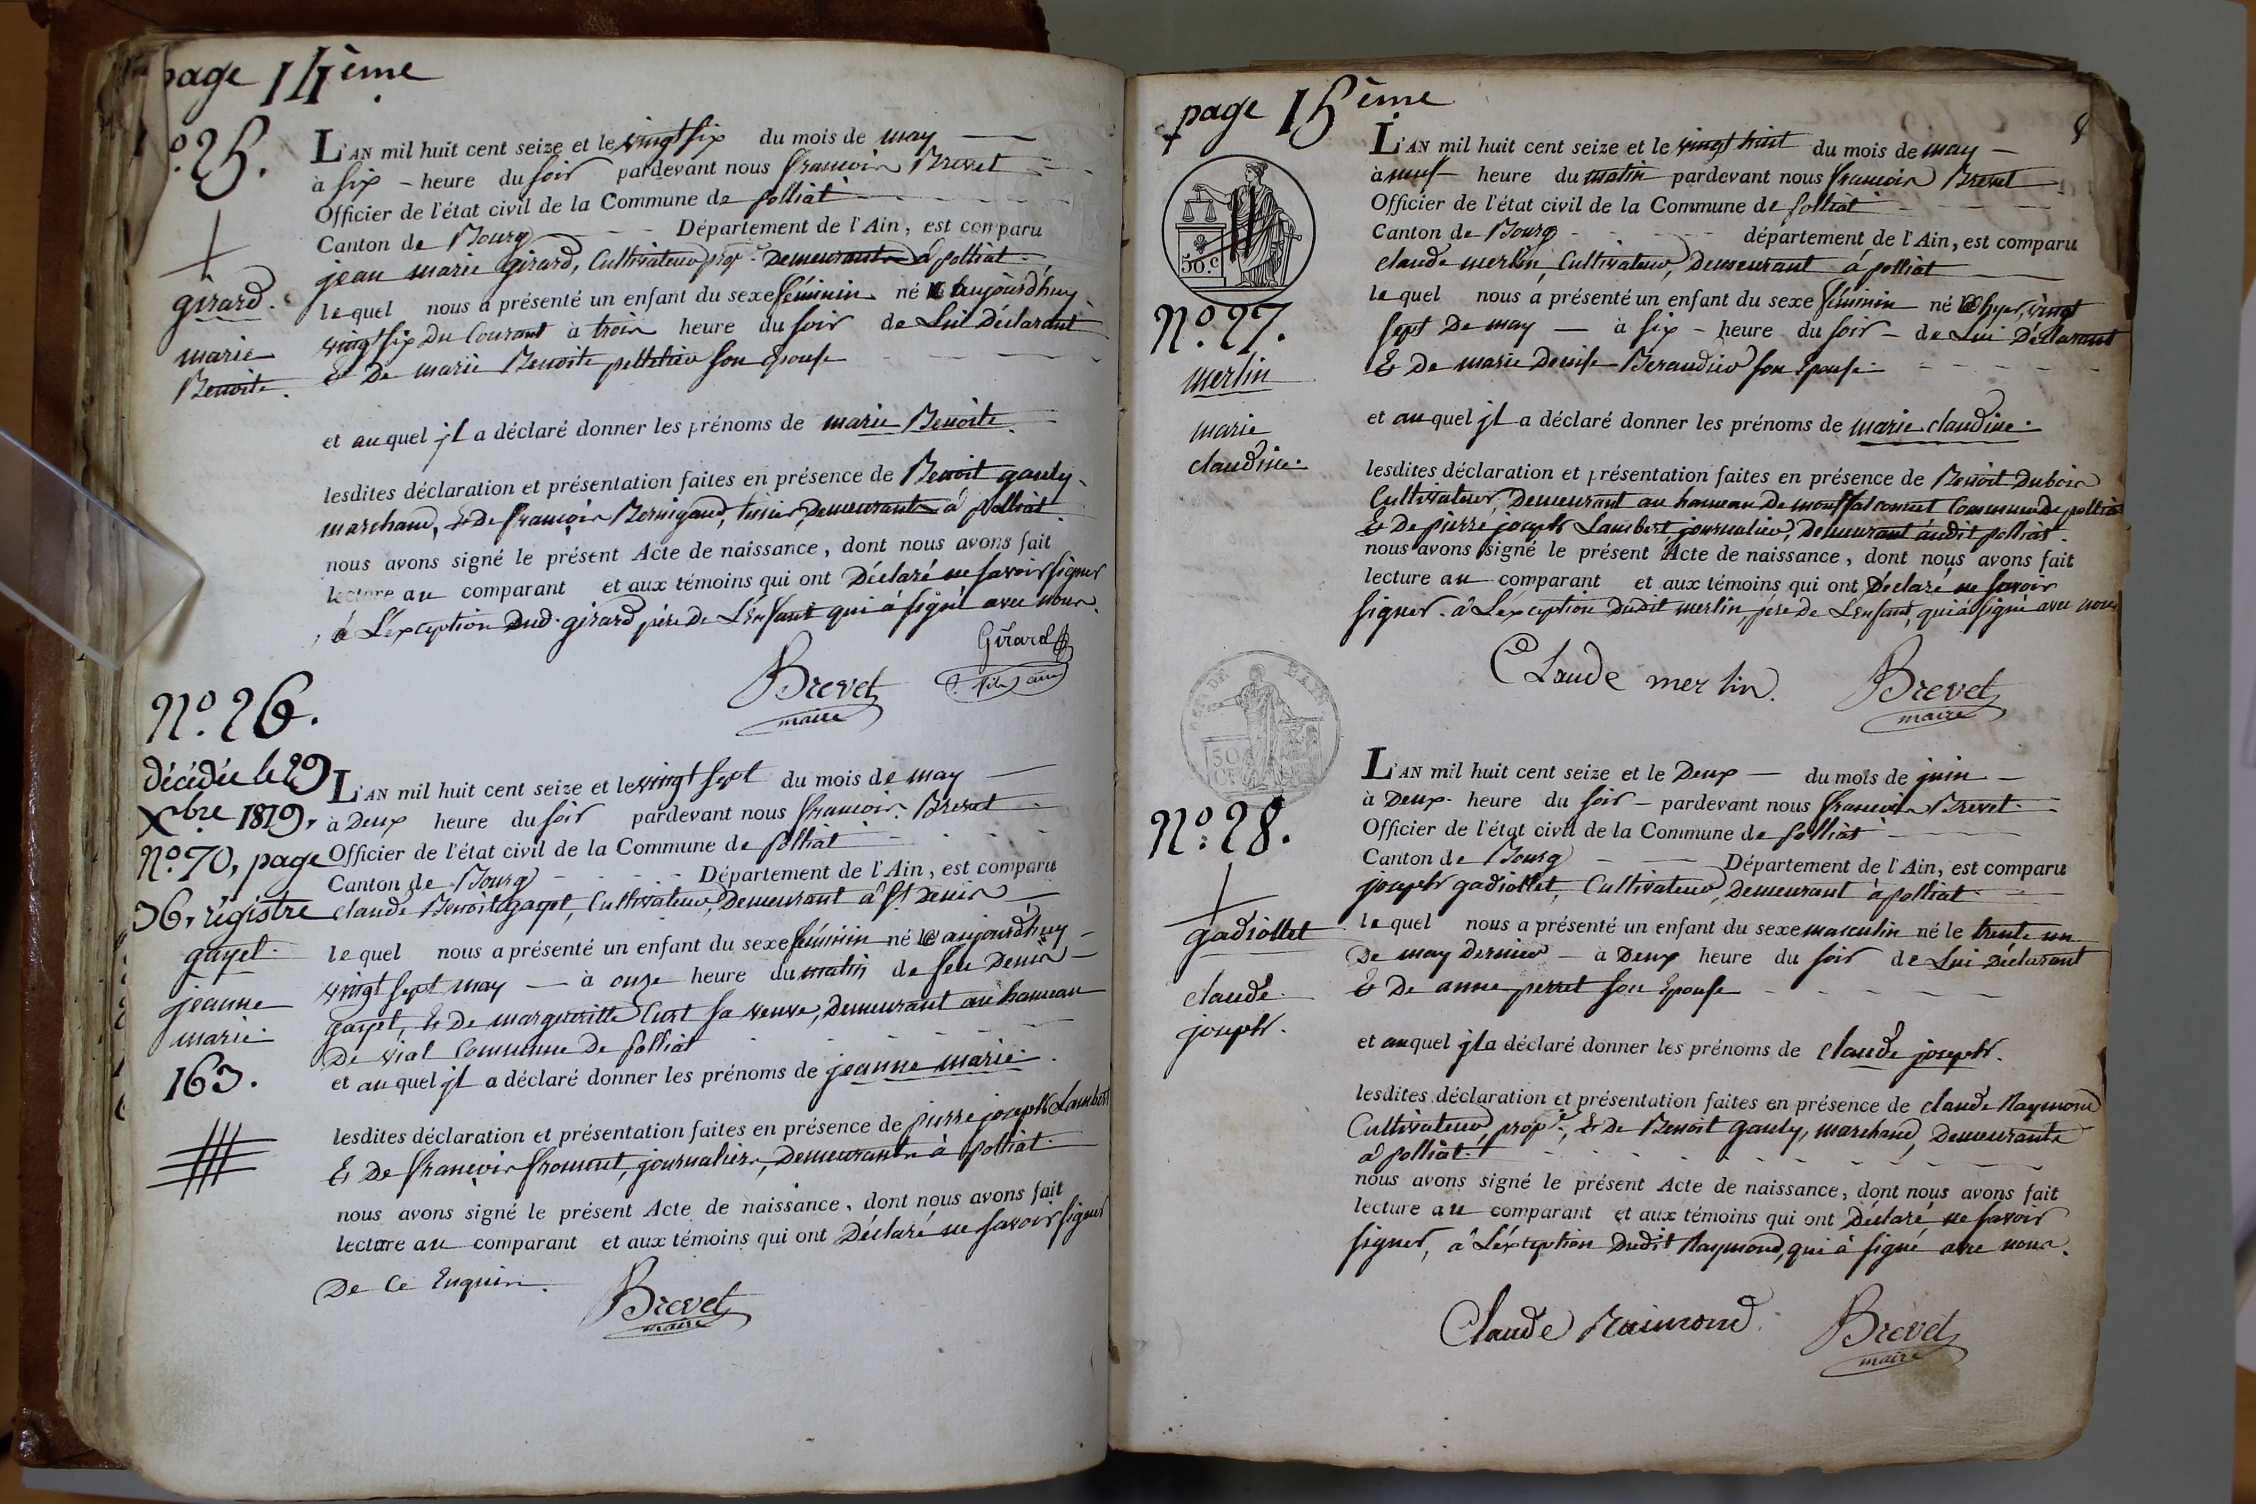 page 14ème
º. 25.
L'AN mil huit cent seize et le vingt six du mois de may
à six heure du soir pardevant nous françois Brevet
Officier de l'état civil de la Commune de polliat
Canton de Bourg Département de l'Ain, est comparu
jean marie girard, Cultivateur propre. Demeurant à polliat
girard.
lequel nous a présenté un enfant du sexe féminin né aujourd'huy
vingt six du Courant à trois heure du soir de Lui Déclarant
marie
Benoite.
& De marie Benoite pelletier son Epouse
et auquel jl a déclaré donner les prénoms de marie Benoite.
lesdites déclaration et présentation faites en présence de Benoit gauly
marchand, & De françois Bernigaud, Demeurants à polliat
nous avons signé le présent Acte de naissance, dont nous avons fait
lecture au comparant et aux témoins qui ont Déclaré ne savoir signer
à L'exception Dud. girard père De L'Enfant qui à signé avec nous.
Girard
Brevet
maire
Nº. 26.
décédée le 29
Xbre 1819,
Nº. 70, page
36, régistre
gayet.
jeanne
marie
163.
L'AN mil huit cent seize et le vingt sept du mois de may
à Deux heure du soir pardevant nous françois Brevet
Officier de l'état civil de la Commune de polliat
Canton de Bourg Département de l'Ain, est comparu
claude Benoit gayet, Cultivateur, Demeurant à St. Denis
lequel nous a présenté un enfant du sexe féminin né le aujourd'huy
vingt sept may à onze heure du matin de feu Denis
gayet, & De margueritte Curt sa veuve, Demeurant au hameau
De vial Commune De polliat
et auquel jl a déclaré donner les prénoms de jeanne marie.
lesdites déclaration et présentation faites en présence de pierre joseph Lambert
& De françois froment, journaliers, Demeurants à polliat.
nous avons signé le présent Acte de naissance, dont nous avons fait
lecture au comparant et aux témoins qui ont Déclaré ne savoir signer
De Ce Enquis.
Brevet
maire
page 15ème
8
50.c
L'AN mil huit cent seize et le vingt huit du mois de may
à neuf heure du matin pardevant nous françois Brevet
Officier de l'état civil de la Commune de polliat
Canton de Bourg département de l'Ain, est comparu
claude merlin, Cultivateur, Demeurant à polliat
Nº. 27.
merlin
marie
claudine.
lequel nous a présenté un enfant du sexe féminin né le hyer, vingt
sept De may à six heure du soir de Lui Déclarant
& De marie Denise Beraudier son Epouse
et auquel jl a déclaré donner les prénoms de marie claudine.
lesdites déclaration et présentation faites en présence de Benoit Dubois
Cultivateur, Demeurant au hameau De montfalconnet Commune de polliat
& De pierre joseph Lambert, journalier, Demeurant audit polliat.
nous avons signé le présent Acte de naissance, dont nous avons fait
lecture au comparant et aux témoins qui ont Déclaré ne savoir
signer. à L'exception Dudit merlin, père De L'Enfant, qui à signé avec nous
Claude merlin.
Brevet
maire
50
Nº. 28.
gadiollet
claude
joseph.
L'AN mil huit cent seize et le Deux du mois de juin
à Deux heure du soir pardevant nous françois Brevet
Officier de l'état civil de la Commune de polliat
Canton de Bourg Département de l'Ain, est comparu
joseph gadiollet, Cultivateur, Demeurant à polliat
lequel nous a présenté un enfant du sexe masculin né le trente un
De may dernier à Deux heure du soir de Lui Déclarant
& De anne perret son Epouse
et auquel jl a déclaré donner les prénoms de claude joseph.
lesdites déclaration et présentation faites en présence de claude Raymond
Cultivateur prope., & De Benoit gauly, marchand, Demeurants
à polliat.
nous avons signé le présent Acte de naissance, dont nous avons fait
lecture au comparant et aux témoins qui ont Déclaré ne savoir
signer, à L'exception Dudit Raymond, qui à signé avec nous.
Claude Raimond
Brevet
maire